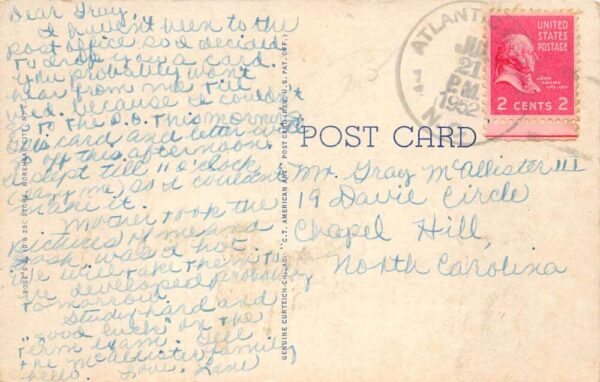 Dear Gray,
I haven't been to the
post office so I decided
to drop you a card.
You probably won't
hear from me till
wed. because I couldn't
go to the P.O. this morning
This card and letter will
go off this afternoon.
I slept till 11 o'clock
(lazy me) so I couldn't
make it.
Mother took the
pictures of me and
gosh was it hot.
We will take them to
be developed probably
tomorrow.
Study hard and
"good luck" on the
term exam. Tell
the McAllister family
hello. Love, Jane
ROSE'S 5, 10 & 25C STORE, MOREHEAD CITY, N. C.
GENUINE CURTEICH-CHICAGO "C.T. AMERICAN ART" POST CARD (REG. U. S. PAT. OFF.)
POST CARD
ATLANTIC
JUL
21
P.M.
1952
1
N.
UNITED
STATES
POSTAGE
JOHN
ADAMS
2 CENTS 2
Mr. Gray McAllister III
19 Davie Circle
Chapel Hill,
North Carolina